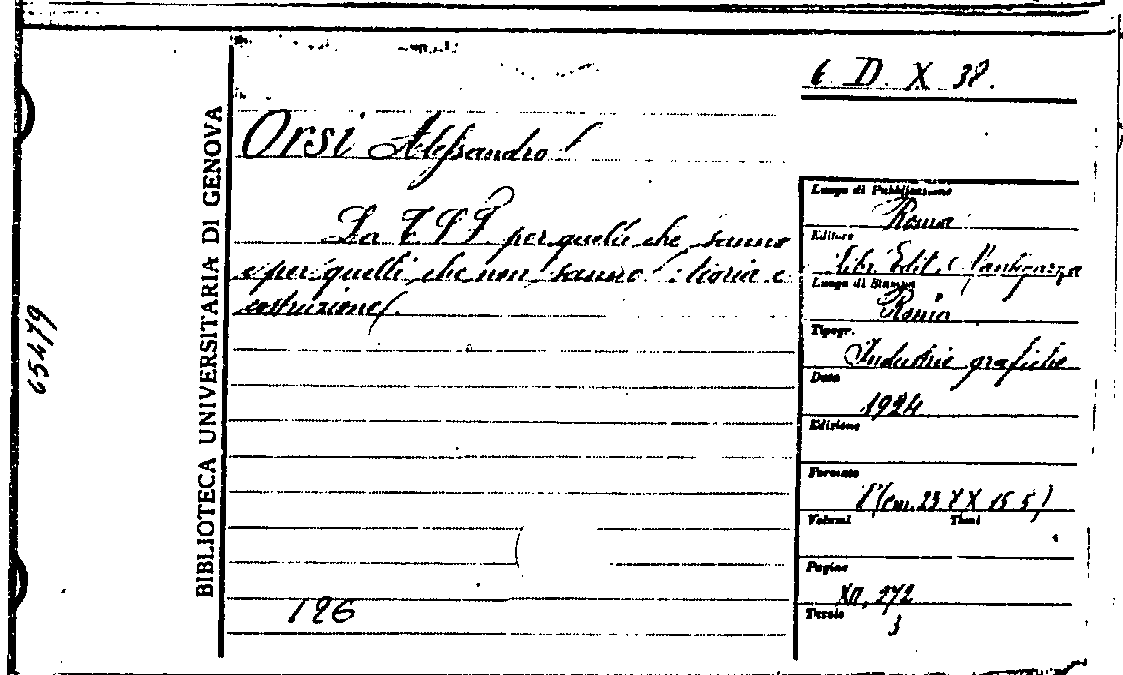 6 D. X 38.
Orsi Alessandro
La T S F per quelli che sanno
e per quelli che non sanno : teoria e
costruzione.
126
BIBLIOTECA UNIVERSITARIA DI GENOVA
65479
Luogo di Pubblicazione
Roma
Editore
Libr. Edit.
Luogo di Stampa
Roma
Tipogr.
Industrie grafiche
Data
1924
Edizione
Formato
8° (cm. 23 X 15 5)
Volumi Tomi
Pagine
XII, 272
Tavole
3